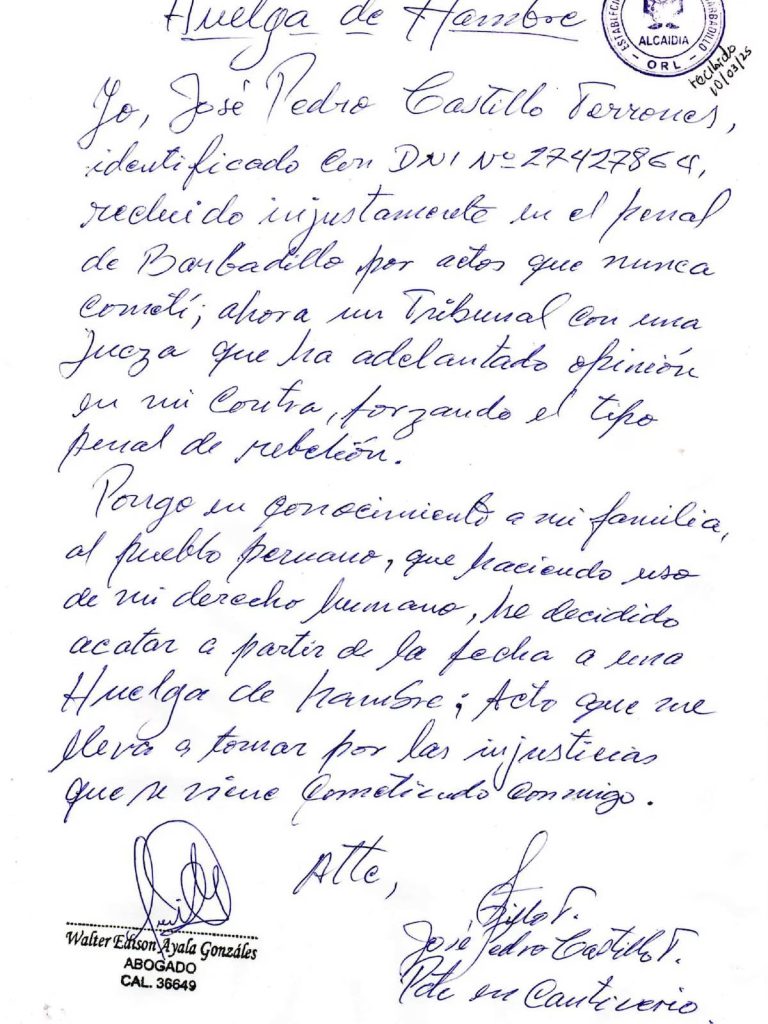 Huelga de Hambre
ESTABLECI
BARBADILLO
ALCAIDIA
ORL
recibido
10/03/25
Yo, José Pedro Castillo Terrones,
identificado con DNI Nº 27427864,
recluido injustamente en el penal
de Barbadillo por actos que nunca
cometí; ahora un Tribunal con una
jueza que ha adelantado opinión
en mi contra, forzando el tipo
penal de rebelión.
Pongo en conocimiento a mi familia,
al pueblo peruano, que haciendo uso
de mi derecho humano, he decidido
acatar a partir de la fecha a una
Huelga de hambre; Acto que me
lleva a tomar por las injusticias
que se viene cometiendo conmigo.
Atte,
Walter Edison Ayala Gonzáles
ABOGADO
CAL. 36649
José Pedro Castillo T.
Pdte en Cautiverio.